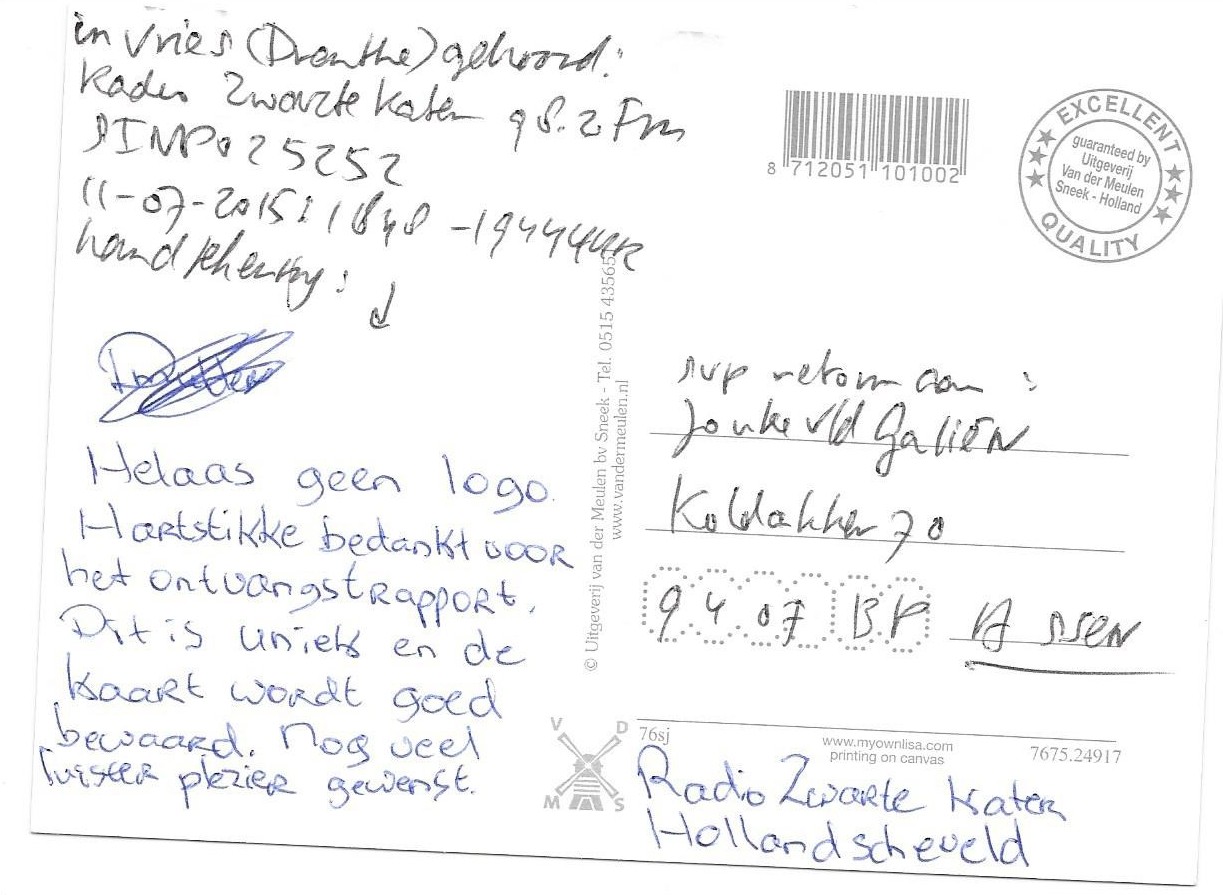 in Vries (Drenthe) gehoord:
Radio Zwarte Kater 98.2 Fm
SINPO 25252
11-07-2015: 1848 -1944 UUR
handtekening:
Helaas geen logo.
Hartstikke bedankt voor
het ontvangstrapport.
Dit is uniek en de
kaart wordt goed
bewaard. Nog veel
luister plezier gewenst.
© Uitgeverij van der Meulen bv Sneek - Tel. 0515 43565
www.vandermeulen.nl
8 712051 101002
EXCELLENT
guaranteed by
Uitgeverij
Van der Meulen
Sneek - Holland
QUALITY
svp retour aan:
Jouke vld Galiën
Koldakker 70
9407 BP Assen
V D
M S
76sj
www.myownlisa.com
printing on canvas
7675.24917
Radio Zwarte Kater
Hollandscheveld